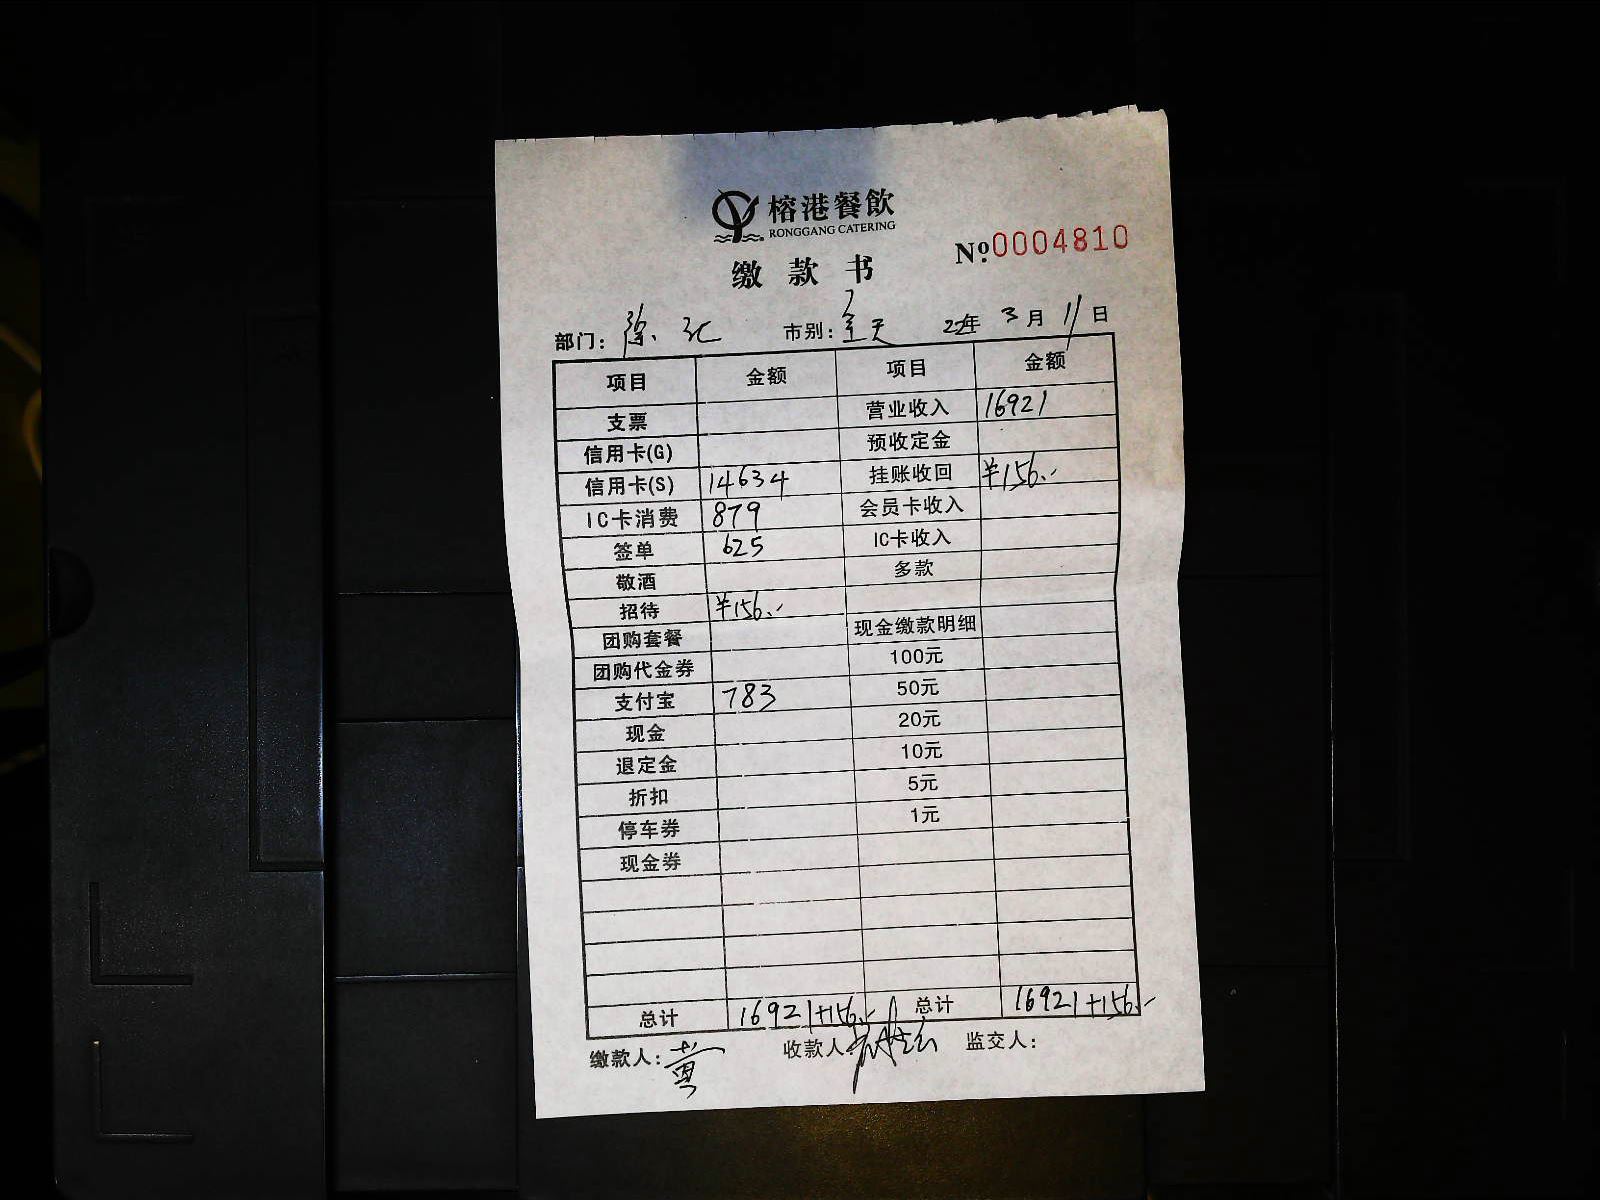 榕港餐飲
RONGGANG CATERING
缴款书
№0004810
部门: 徐记 市别: 全天 22年 3月 11日
项目 金额 项目 金额
支票 营业收入 16921
信用卡(G) 预收定金
信用卡(S) 14634 挂账收回 ¥156.-
IC卡消费 879 会员卡收入
签单 625 IC卡收入
敬酒 多款
招待 ¥156.-
团购套餐 现金缴款明细
团购代金券 100元
支付宝 783 50元
现金 20元
退定金 10元
折扣 5元
停车券 1元
现金券
总计 16921+156.- 总计 16921+156.-
缴款人: 黄 收款人: 监交人: